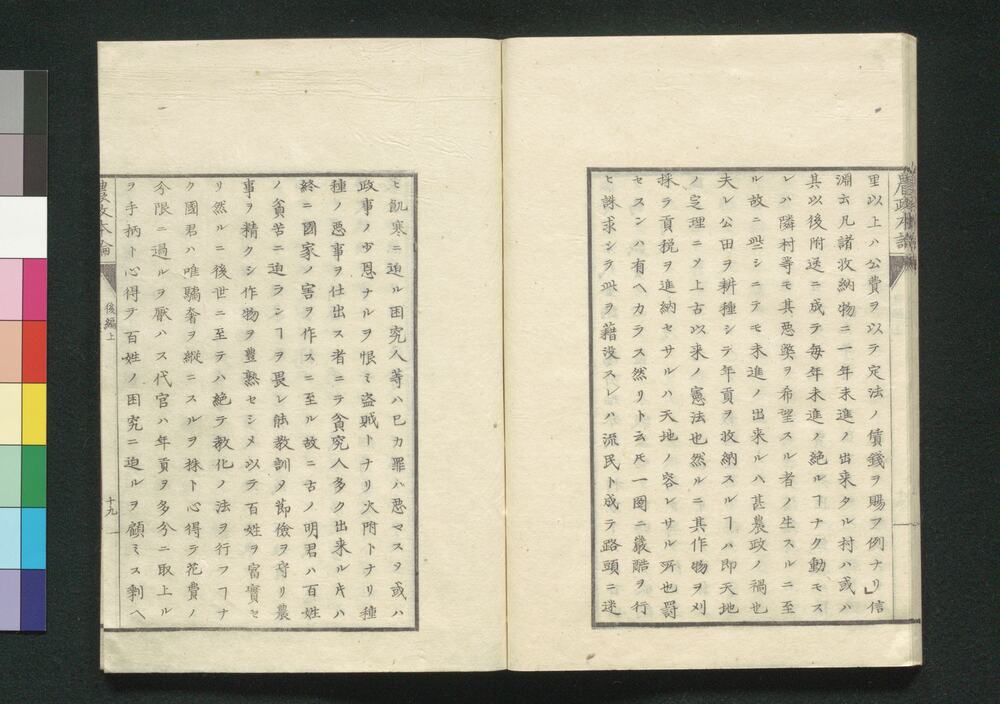 里以上ハ公費ヲ以テ定法ノ償錢ヲ賜フ例ナリ」信
淵云凡諸收納物ニ一年未進ノ出来タル村ハ或ハ
其以後附送ニ成テ毎年未進ノ絶ルヿナク動モス
レハ隣村等モ其悪弊ヲ希望スル者ノ生スルニ至
ル故ニ些シニテモ未進ノ出来ルハ甚農政ノ禍也
夫レ公田ヲ耕種シテ年貢ヲ收納スルヿハ即天地
ノ定理ニ〆上古以来ノ憲法也然ルニ其作物ヲ刈
採ラ貢税ヲ進納セサルハ天地ノ容レサル所也罰
セスンハ有ヘカラス然リト云𪜈一圖ニ嚴酷ヲ行
ヒ誅求シラ此ヲ藉没スレハ流民ト成テ路頭ニ迷
農政本論
ヒ飢寒ニ迫ル困究人等ハ已カ罪ハ悪マスヲ或ハ
政事ノ少恩ナルヲ恨ミ盗賊トナリ火附トナリ種
種ノ悪事ヲ仕出ス者ニテ貧究人多ク出来ル𪜈ハ
終ニ國家ノ害ヲ作スニ至ル故ニ古ノ明君ハ百姓
ノ貧苦ニ迫ランヿヲ畏レ能教訓〆節儉ヲ守リ農
事ヲ精クシ作物ヲ豊熟セシメ以テ百姓ヲ富實セ
リ然ルニ後世ニ至テハ絶テ教化ノ法ヲ行フヿナ
ク國君ハ唯驕奢ヲ縦ニスルヲ株ト心得テ花費ノ
今限ニ過ルヲ厭ハス代官ハ年貢ヲ多分ニ取上ル
ヲ手柄ト心得テ百姓ノ困究ニ迫ルヲ顧ミス剰ヘ
農政本論
後編上
十九